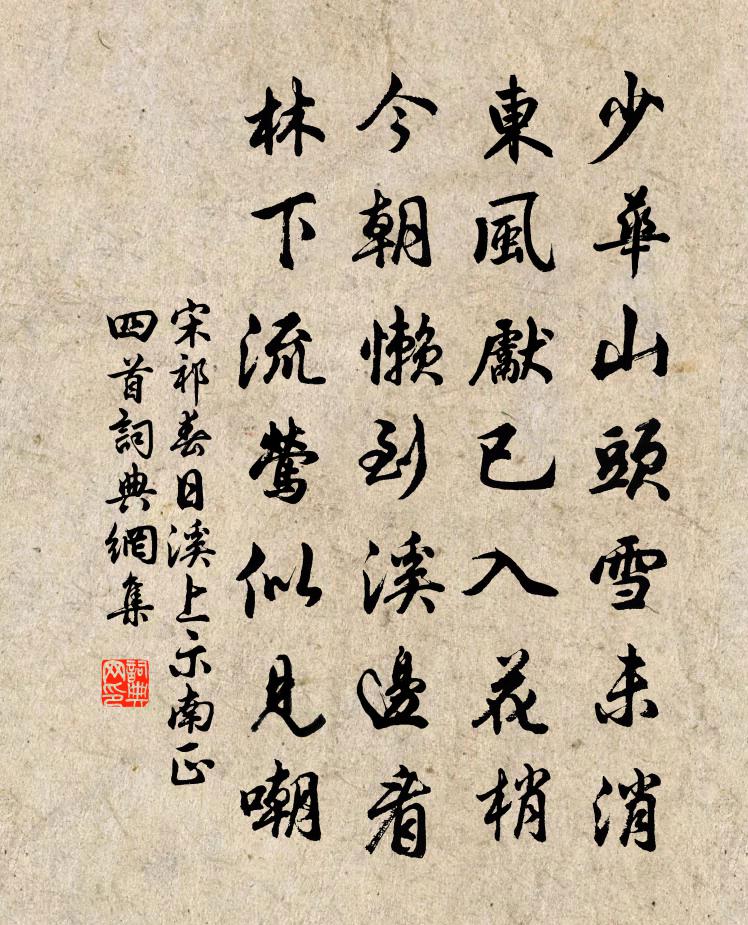 少華山頭雪未消
東風獻已入花梢
今朝懶到溪邊看
林下流鶯似見嘲
宋祁春日溪上示南正
四首詞典網集
詞典网印